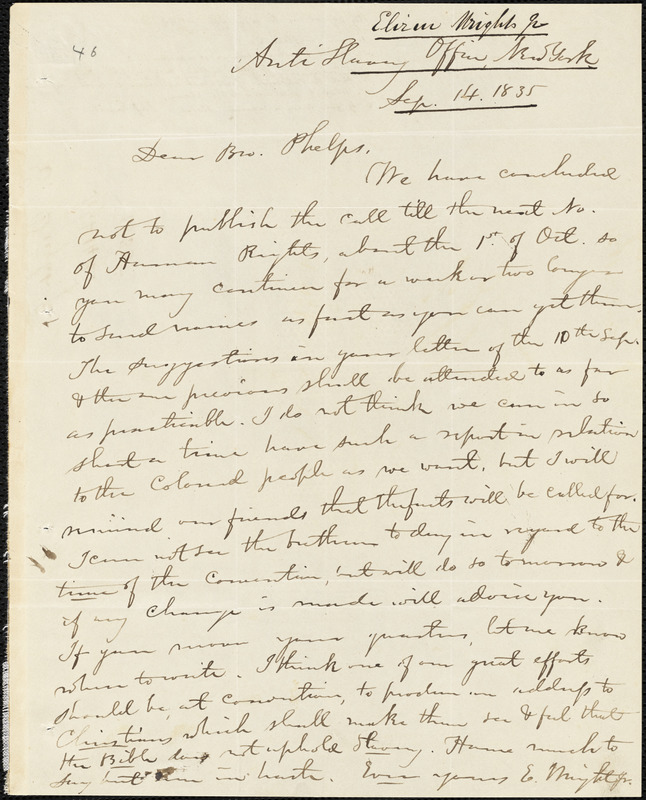 46
Elizur Wright Jr
Anti Slavery Office, New York
Sep. 14. 1835
Dear Bro. Phelps,
We have concluded
not to publish the call till the next No.
of Human Rights, about the 1st of Oct. so
you may continue for a week or two longer
to send names as fast as you can get them.
The suggestions in your letter of the 10th Sep.
& the one previous shall be attended to as far
as practicable. I do not think we can in so
short a time have such a report in relation
to the Colored people as we want, but I will
remind our friends that the facts will be called for.
I can not see the brethren to day in regard to the
time of the Convention, but will do so tomorrow &
if any change is made will advise you.
If you move your quarters, let me know
where to write. I think one of our great efforts
should be, at convention, to produce an address to
Christians which shall make them see & feel that
the Bible does not uphold Slavery. Have much to
say but am in haste. Ever yours E. Wright Jr.